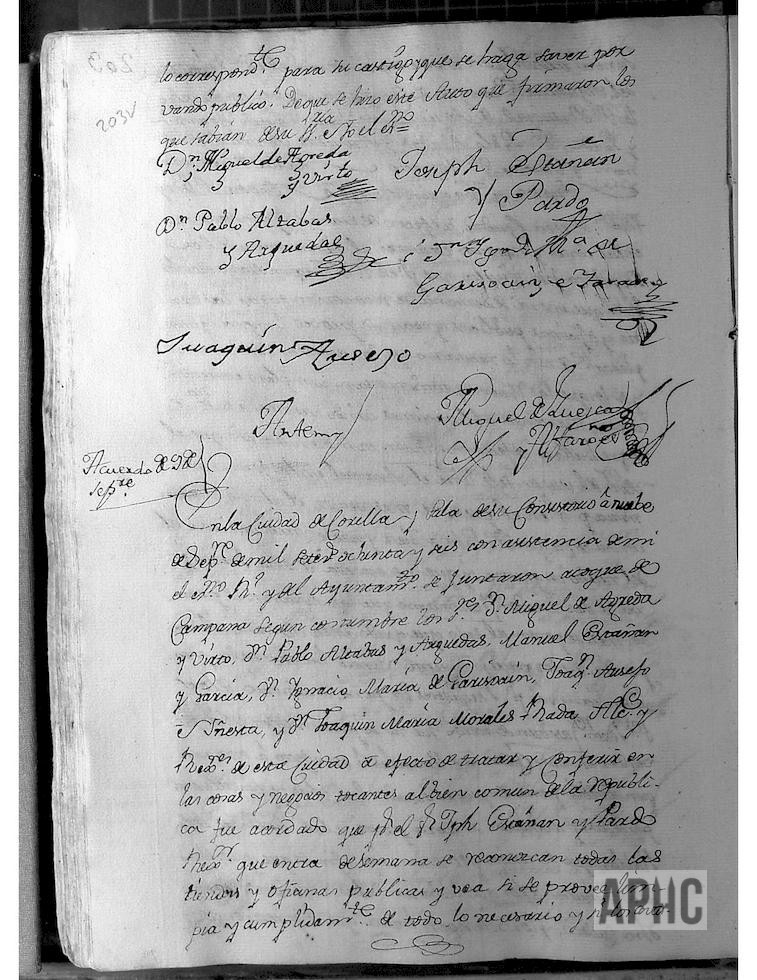 203
203V
lo correspond.te para su castigo y que se haga saver por
vando publico. De que se hizo este Auto que firmaron los
que sabian de su S.ria Yo el Sno
Dn. Miguel de Agreda
y Virto
Joseph Estañan
y Pardo
Dn Pablo Altabas
y Arguedas
Dn Ygn.o Ma. de
Garisoain e
Juaquin Ausejo
Antemy
Miguel de Luesca
y Alfaro esno
Acuerdo de 9 de
Sepre.
En la Ciudad de Corella y Sala de su Consistorio a nuebe
de Sepre. de mil setezs ochenta y seis con asistencia de mi
el esno Rl. y del Ayuntamto. se juntaron a toque de
Campana segun costumbre los Sres Dn. Miguel de Agreda
y Virto, Dn. Pablo Altabas y Arguedas, Manuel Estañan
y Garcia, Dn. Ygnacio Maria de Garisoain, Joaqn. Ausejo
e Yñesta, y Dn. Joaquin Maria Morales Rada Alce. y
Rexres. de esta Ciudad a efecto de tratar y Conferir en
las cosas y negocios tocantes al bien comun de la republi-
ca fue acordado que pr. el Sr. Jph Estañan y Pardo
Rexor. que entra de semana se reconozcan todas las
tiendas y oficinas publicas y vea si se provee lim-
pia y cumplidamte. de todo lo necesario y
APHC